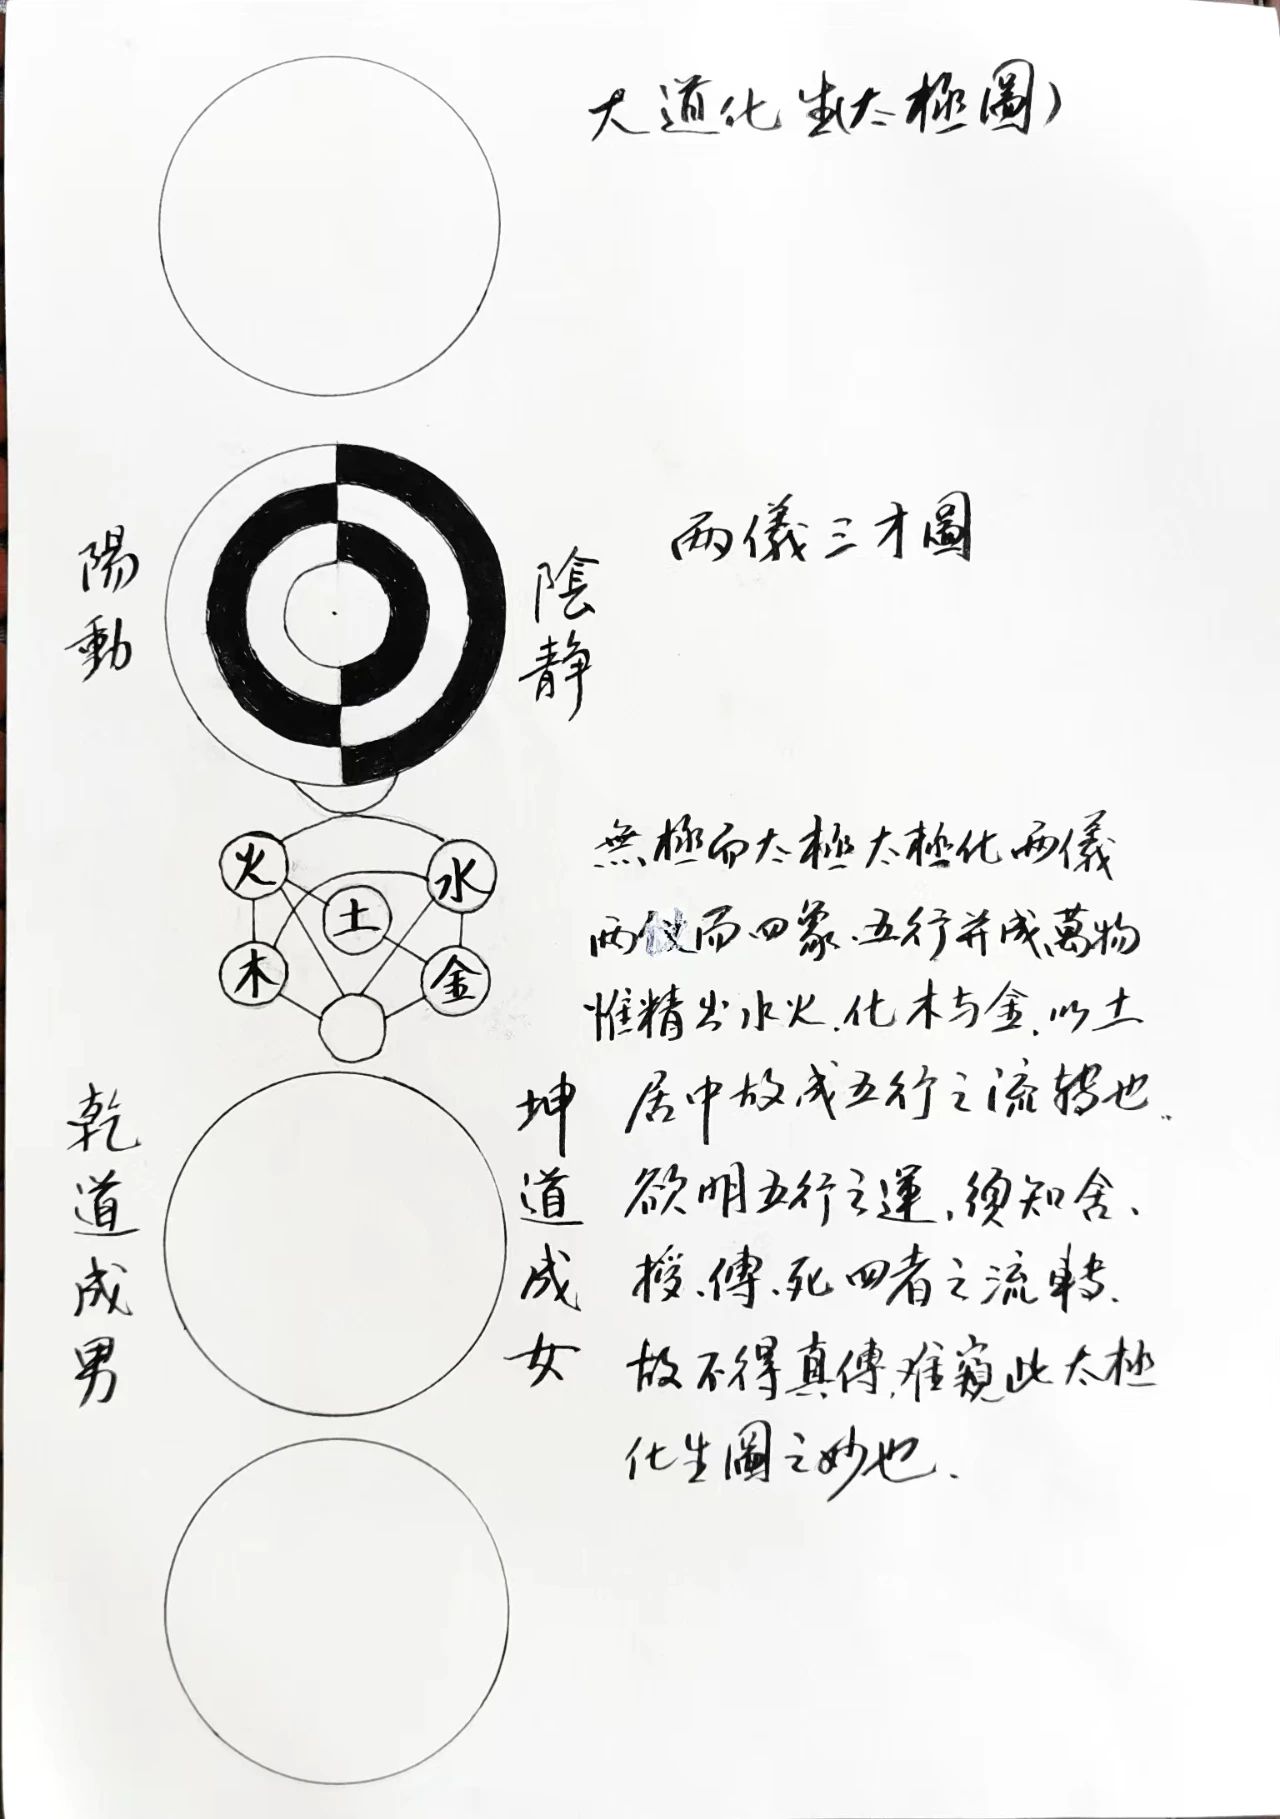 大道化生(太極圖)
陽動
陰静
两儀三才圖
火
水
土
木
金
無極而太極太極化两儀
两仪而四象、五行并成萬物
惟精出水火、化木与金、以土
居中故成五行之流轉也。
乾道成男
坤道成女
欲明五行之運、須知舍、
授、傳、死四者之流轉、
故不得真傳、难窺此太極
化生圖之妙也、